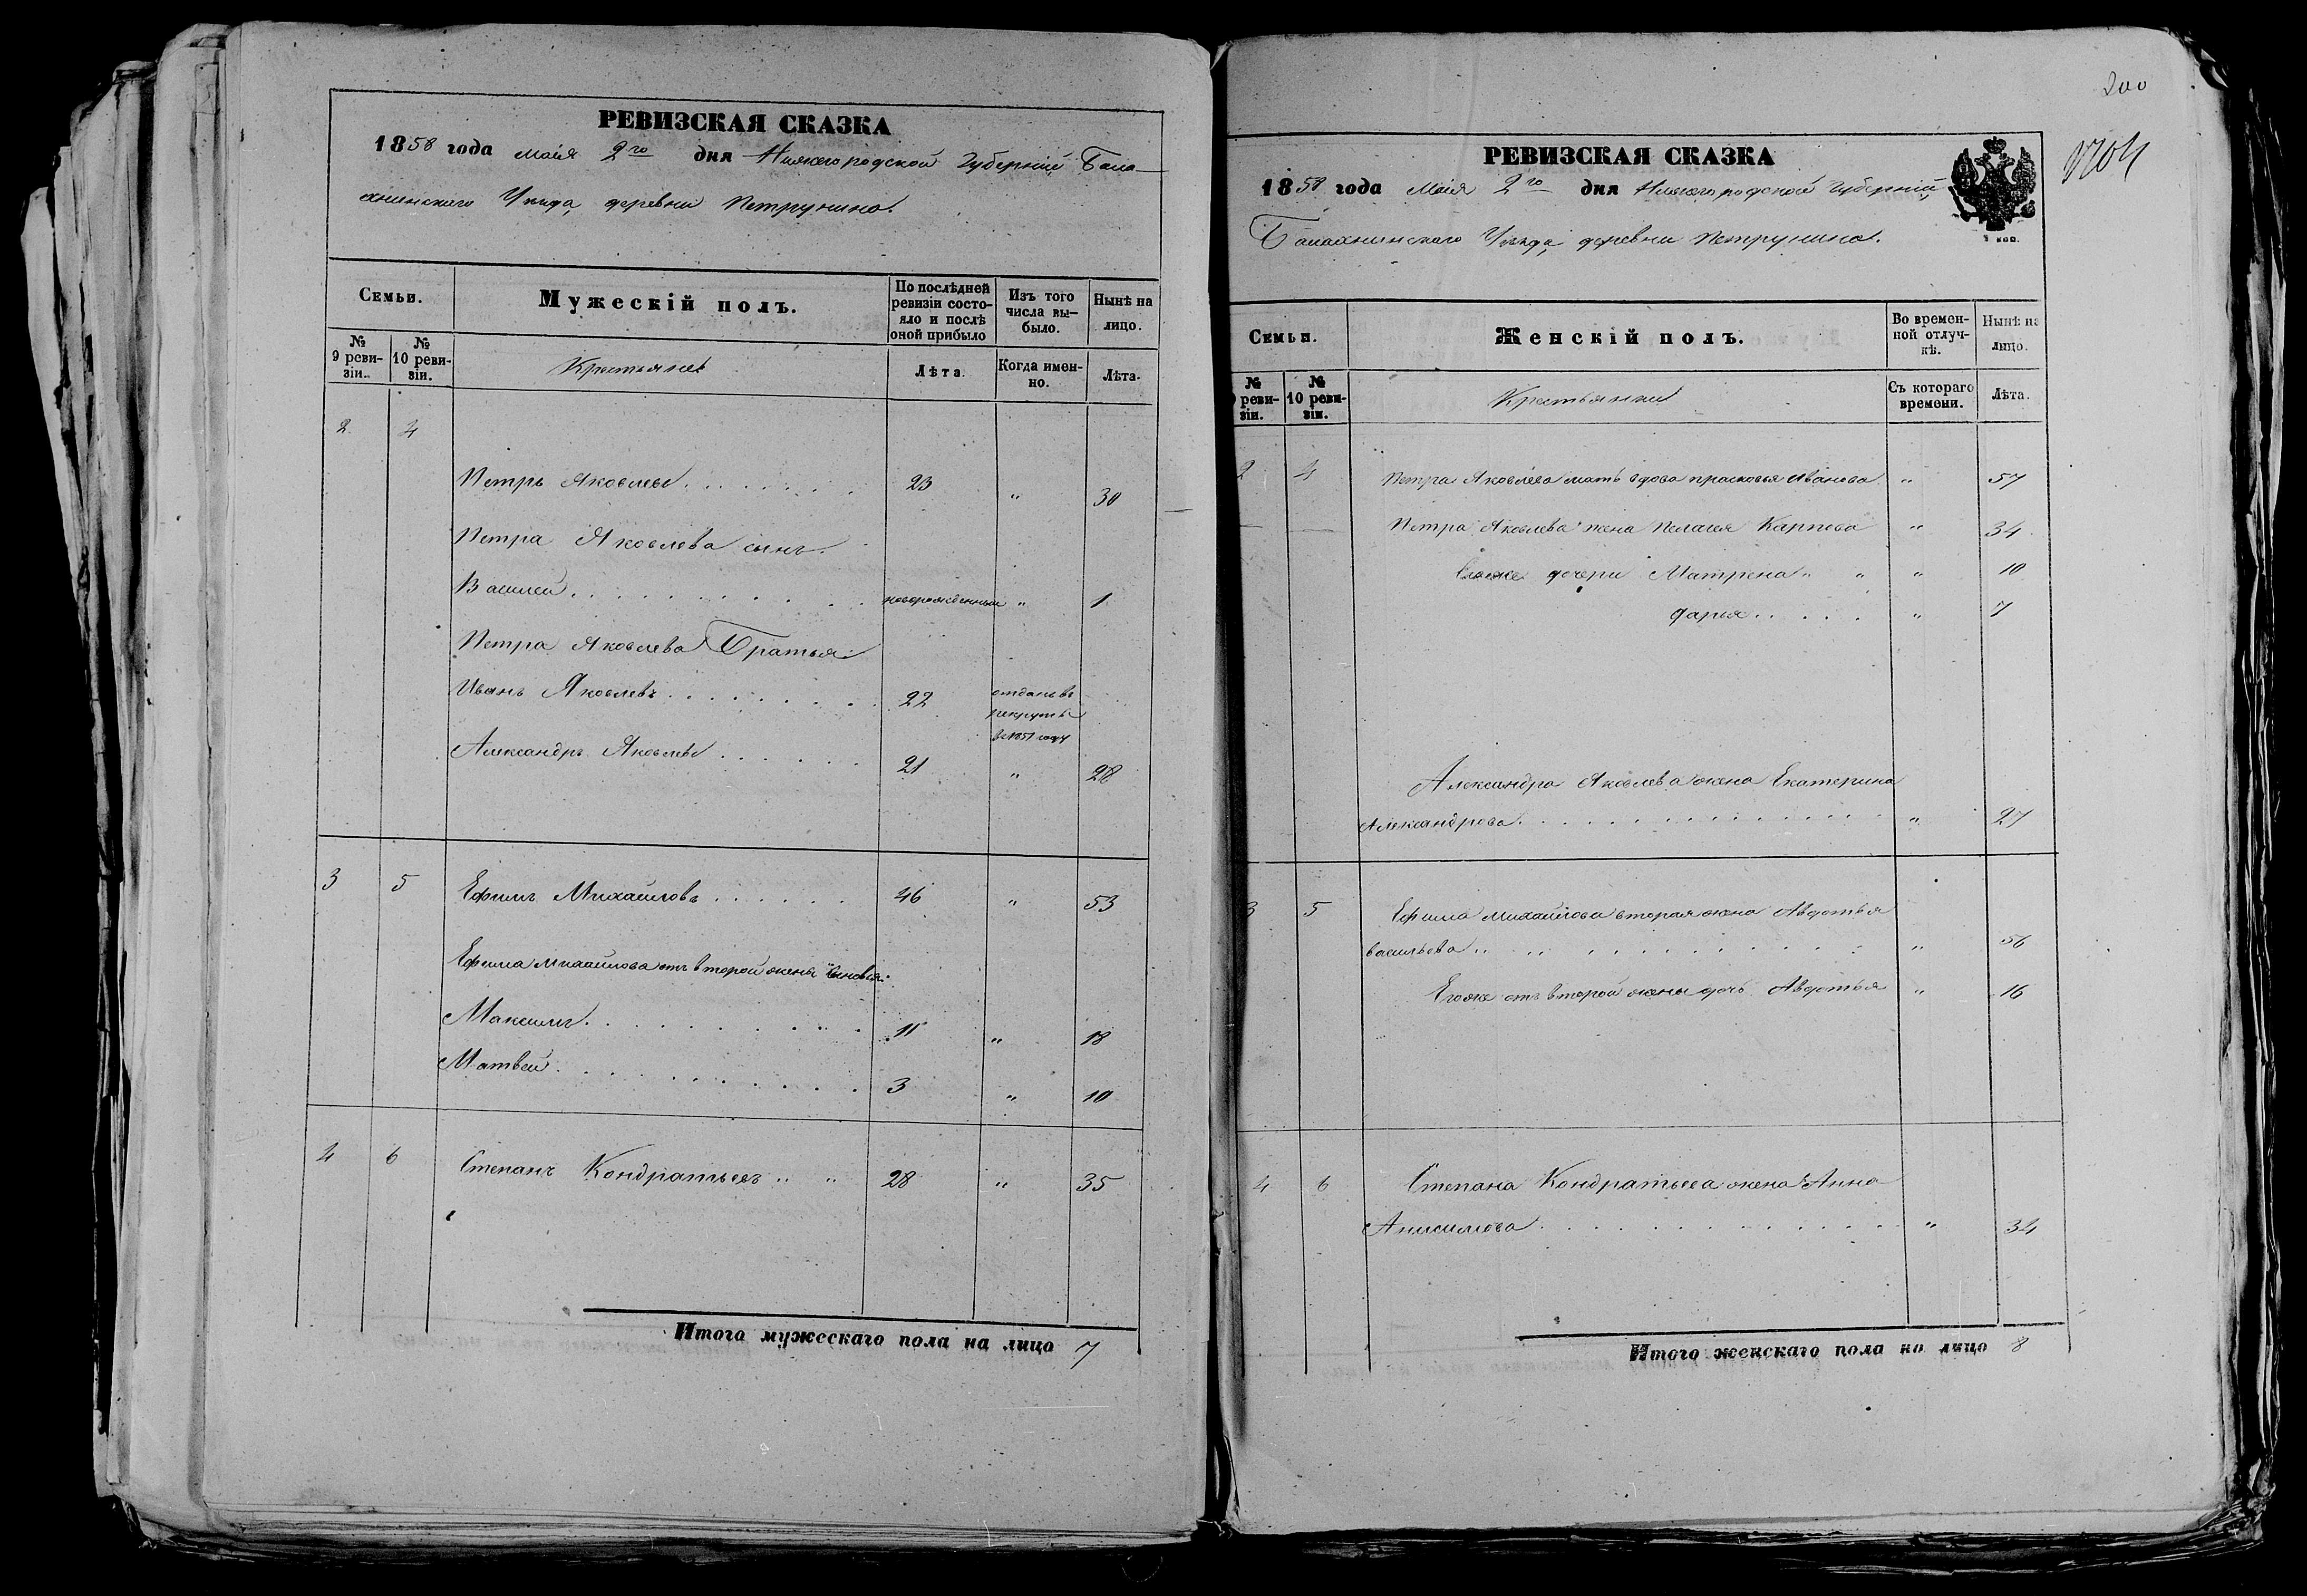 РЕВИЗСКАЯ СКАЗКА
1858 года маія 2го дня Нижегородской Губерніи Бала-
хнинскаго Уѣзда, деревни Петрунино.
Семьи.
Мужескій полъ.
По послѣдней ревизіи состо-яло и послѣ оной прибыло
Изъ того числа вы-было.
Нынѣ на лицо.
№ 9 реви-зіи.
№ 10 реви-зіи.
Крестьяне
Лѣта.
Когда имен-но.
Лѣта.
2 4
Петръ Яковлевъ 23 " 30
Петра Яковлева сынъ
Василей новорожденный " 1
Петра Яковлева Братья
Иванъ Яковлевъ 22 отданъ въ
рекруты
въ 1851 году
Александръ Яковлевъ 21 " 28
3 5 Ефимъ Михайловъ 46 " 53
Ефима Михайлова отъ второй жены сыновья
Максимъ 11 " 18
Матвей 3 " 10
4 6 Степанъ Кондратьевъ " " 28 " 35
Итого мужескаго пола на лицо 7
200
РЕВИЗСКАЯ СКАЗКА
1858 года Маія 2го дня Нижегородской Губерніи
Балахнинскаго Уѣзда, деревни Петрунино.
3 коп.
Семьи.
Женскій полъ.
Во времен-ной отлуч-кѣ.
Нынѣ на лицо.
№ реви-зіи.
№ 10 реви-зіи.
Крестьянки
Съ котораго времени.
Лѣта.
2 4 Петра Яковлева мать вдова прасковья Иванова " 57
Петра Яковлева жена Пелагея Карпова " 34
дочери Матрена " " " 10
дарья " 7
Александра Яковлева жена Екатерина
Александрова " 27
3 5 Ефима Михайлова вторая жена Авдотья
васильева " 56
Егоже отъ второй жены дочь Авдотья " 16
4 6 Степана Кондратьева жена Анна
Анисимова " 34
Итого женскаго пола на лицо 8